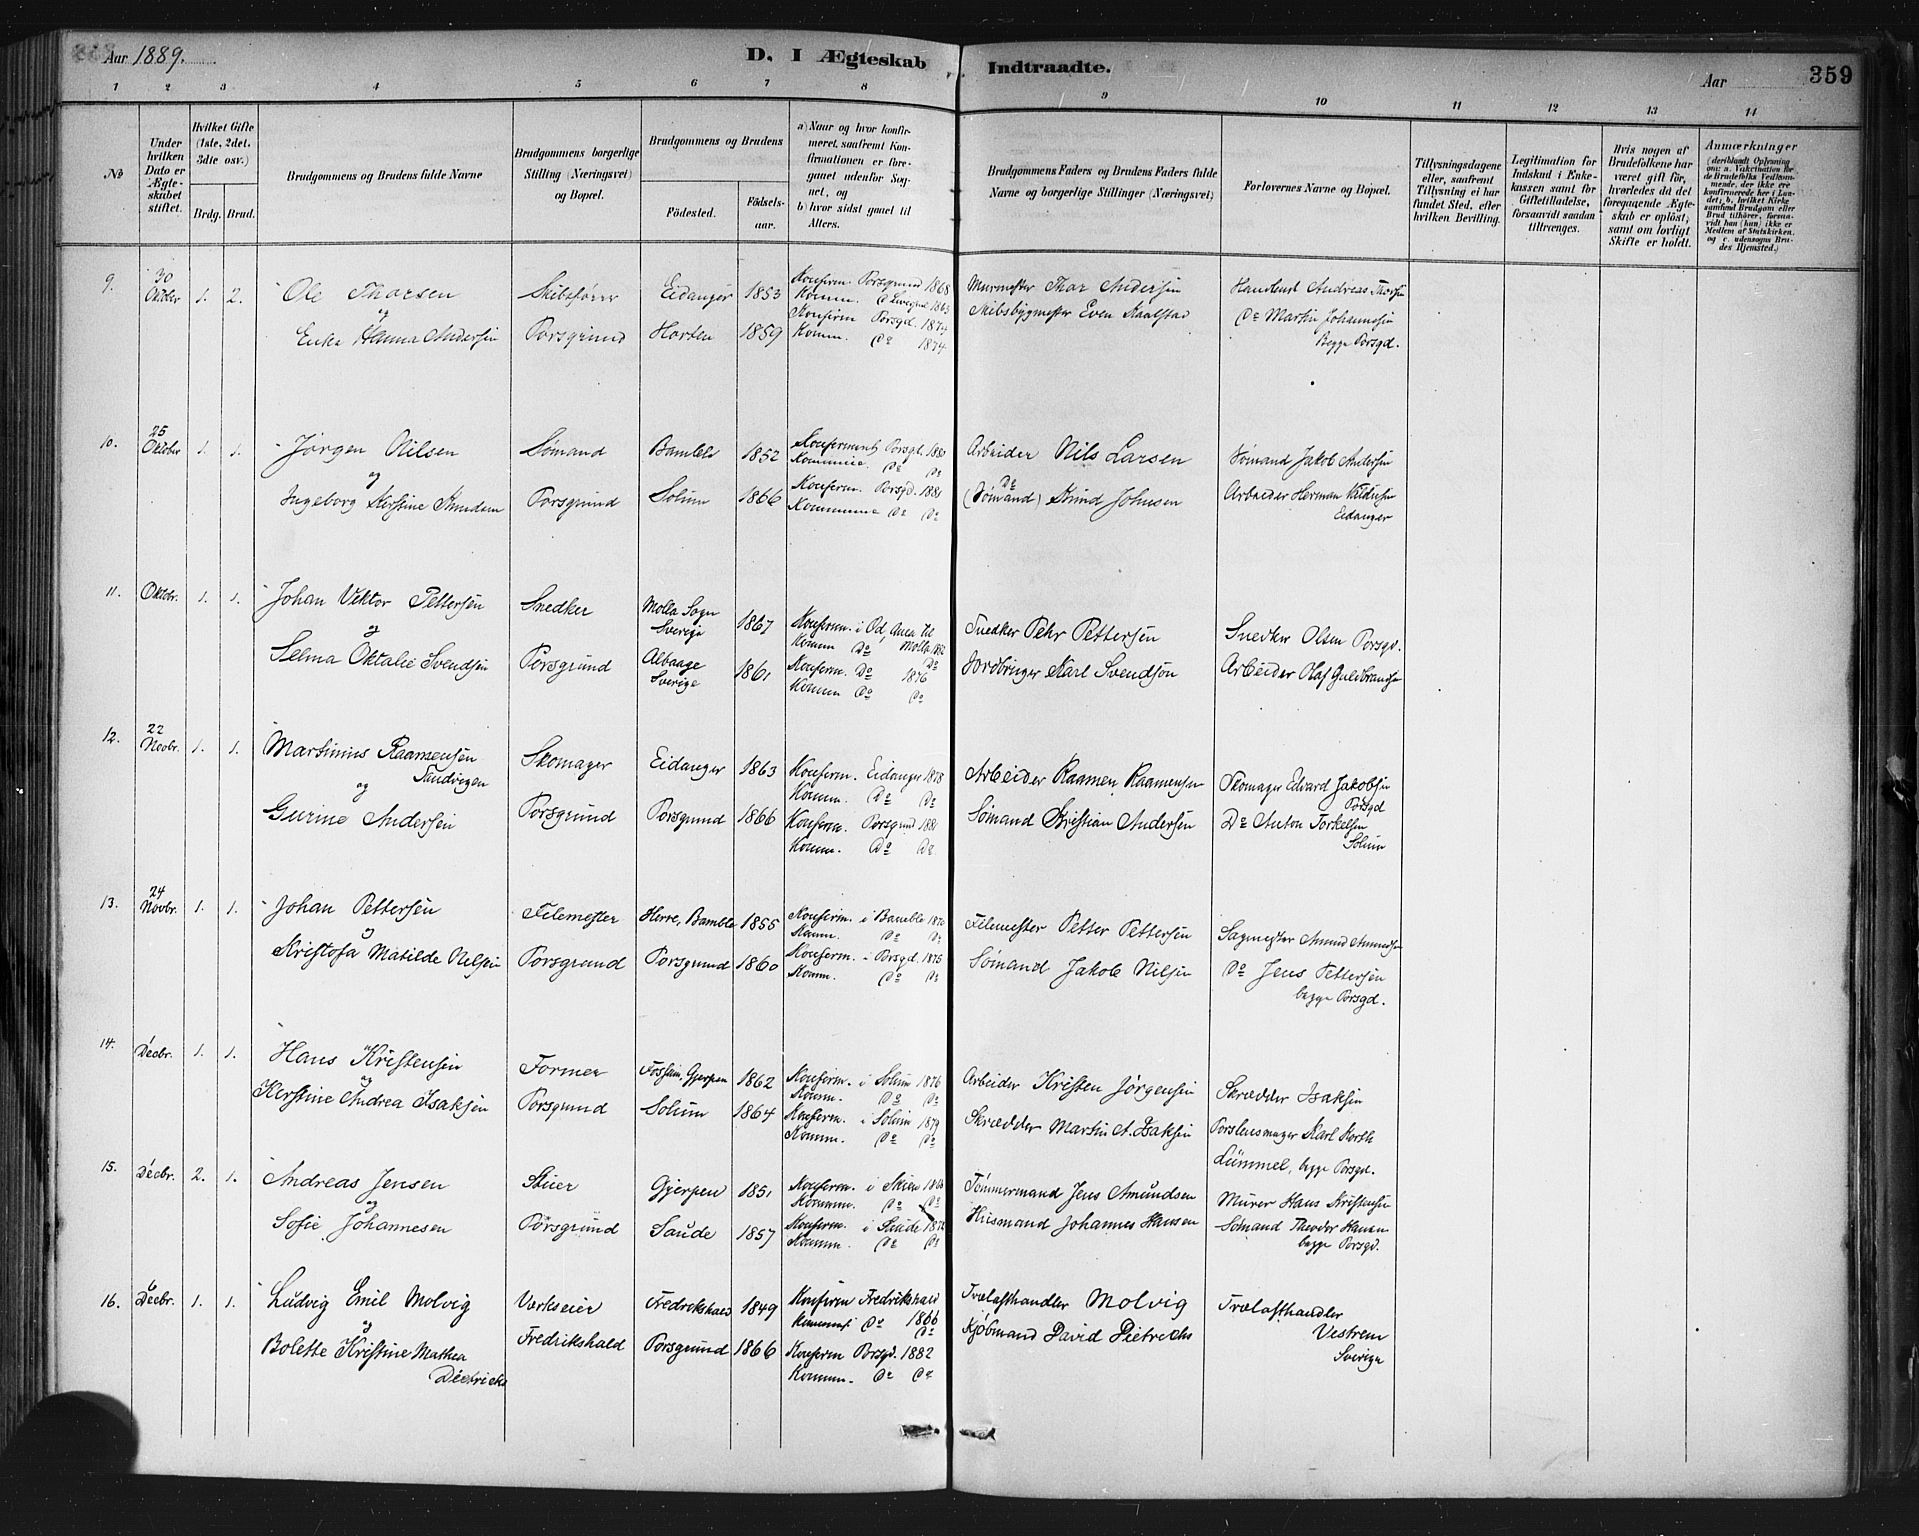 Aar 1889.
D. I Ægteskab Indtraadte.
Aar 359
1 2 3 4 5 6 7 8 9 10 11 12 13 14
No
Under hvilken Dato er Ægteskabet stiftet.
Hvilket Gifte (1ste, 2det, 3die osv.)
Brdg. Brud.
Brudgommens og Brudens fulde Navne
Brudgommens borgerlige Stilling (Næringsvei) og Bopæl.
Brudgommens og Brudens
Fødested. Fødselsaar.
a) Naar og hvor konfirmeret, saafremt Konfirmationen er foregaaet udenfor Sognet, og
b) hvor sidst gaaet til Alters.
Brudgommens Faders og Brudens Faders fulde Navne og borgerlige Stillinger (Næringsvei)
Forlovernes Navne og Bopæl.
Tillysningsdagene eller, saafremt Tillysning ei har fundet Sted, efter hvilken Bevilling.
Legitimation for Indskud i Enkekassen samt for Giftetilladelse, forsaavidt saadan tiltrænges.
Hvis nogen af Brudefolkene har været gift før, hvorledes da det foregaaende Ægteskab er opløst; samt om lovligt Skifte er holdt.
Anmærkninger
9. 30 Oktober 1. 2. Ole Thorsen Skibsfører Eidanger 1853 Konfirm. Porsgrund 1868 Murmester Thor Andersen Handlend Andreas Thorsen
og Komm.
Enke Hanna Andersen Porsgrund Horten 1859 Konfirm Porsgd. 1874 Skibsbygmester Even Skaalstad Do Martin Johannesen
Komm. Do 1874 Begge Porsgd.
10. 25 Oktober 1. 1. Jørgen Nilsen Sømand Bamble 1852 Konfirmeret Porsgd. Arbeider Nils Larsen Sømand Jakob Andersen
og Kommunie Do Do
Ingeborg Kirstine Knudsen Porsgrund Solum 1866 Konfirm. Porsgd. 1881 Do (Sømand) Knud Johnsen Arbeider Herman
Kommunie Do Do Eidanger
11. Oktobr. 1. 1. Johan Vektor Pettersen Snedker Molla Sogn Sverige 1867 Konfirm. i Snedker Pehr Pettersen Snedker Olsen Porsgd.
og Komm Do
Selma Oktalie Svendsen Porsgrund Albaage Sverige 1861 Konfirm. Do 1876 Jordbruger Karl Svendsøn Arbeider Olaf Guldbrandsen
Komm Do Do
12. 22 Novbr. 1. 1. Martinius Raamensen Skomager Eidanger 1863 Konfirm. Eidanger 1878 Arbeider Raamen Raamensen Skomager Edvard Jakobsen
Sandvigen Komm. Do Do Porsgd
og
Gurine Andersen Porsgrund Porsgrund 1866 Konfirm. Porsgrund 1881 Sømand Kristian Andersen Do Anton Torkelsen
Komm. Do Do Solum
13. 24 Novbr. 1. 1. Johan Pettersen Filemester Herre, Bamble 1855 Konfirm. i Bamble Filemester Petter Pettersen Sagmester Amund Amundsen
og Komm. Do Do
Kristofa Matilde Nilsen Porsgrund Porsgrund 1860 Konfirm. i Porsgd. 1875 Sømand Jakob Nilsen Do Jens Pettersen
Komm. Do Do begge Porsgd.
14. Decbr. 1. 1. Hans Kristensen Former Fossum, Gjerpen 1862 Konfirm. i Solum 1876 Arbeider Kristen Jørgensen Skrædder Isaksen
og Komm. Do Do
Kirstine Andrea Isaksen Porsgrund Solum 1864 Konfirm. i Solum 1879 Skrædder Martin A. Isaksen Karl
Komm. Do Do Lümmel, begge Porsgd.
15. Decbr. 2. 1. Andreas Jensen Stuer Gjerpen 1851 Konfirm. i Skien Tømmermand Jens Amundsen Murer Hans Kristensen
og Komm. Do Do
Sofie Johannesen Porsgrund Saude 1857 Konfirm. i Saude 1872 Husmand Johannes Hansen Sømand Theodor Hansen
Komm. Do Do begge Porsgd.
16. 6 Decbr. 1. 1. Ludvig Emil Molvig Værkseier Fredrikshald 1849 Konfirm Fredrikshald 1866 Trælasthandler Molvig Trælasthandler
og Do Do Vestrem
Bolette Kristine Mathea Fredrikshald Porsgrund 1866 Konfirm Porsgd. 1882 Kjøbmand David Dietrichs Sverige
Dietrichs Komm. Do Do